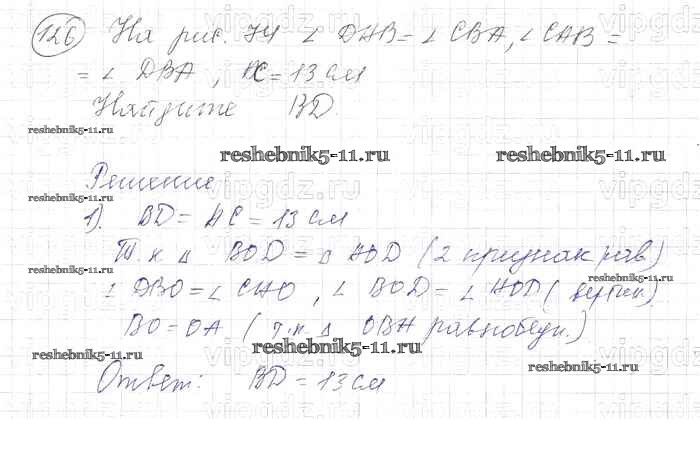 126 На рис. 74 ∠ DAB = ∠ CBA, ∠ CAB =
= ∠ DBA, AC = 13 см
Найдите BD.
reshebnik5-11.ru
reshebnik5-11.ru reshebnik5-11.ru
Решение
reshebnik5-11.ru
1). BD = AC = 13 см
Т.к Δ BOD = Δ AOD (2 признак рав)
reshebnik5-11.ru reshebnik5-11.ru
∠ DBO = ∠ CAO, ∠ BOD = ∠ AOD (вертик)
BO = OA (т.к. Δ OBA равнобедр.)
reshebnik5-11.ru reshebnik5-11.ru
reshebnik5-11.ru
Ответ: BD = 13 см